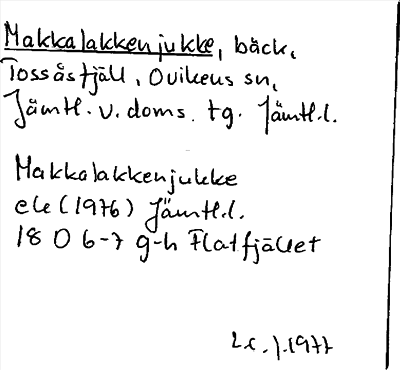 Makkalakkenjukke, bäck,
Tossåsfjäll, Ovikens sn,
Jämtl. v. doms. tg. Jämtl.l.
Makkalakkenjukke
ek (1976) Jämtl.l.
18 D 6-7 g-h Flatfjället
1977